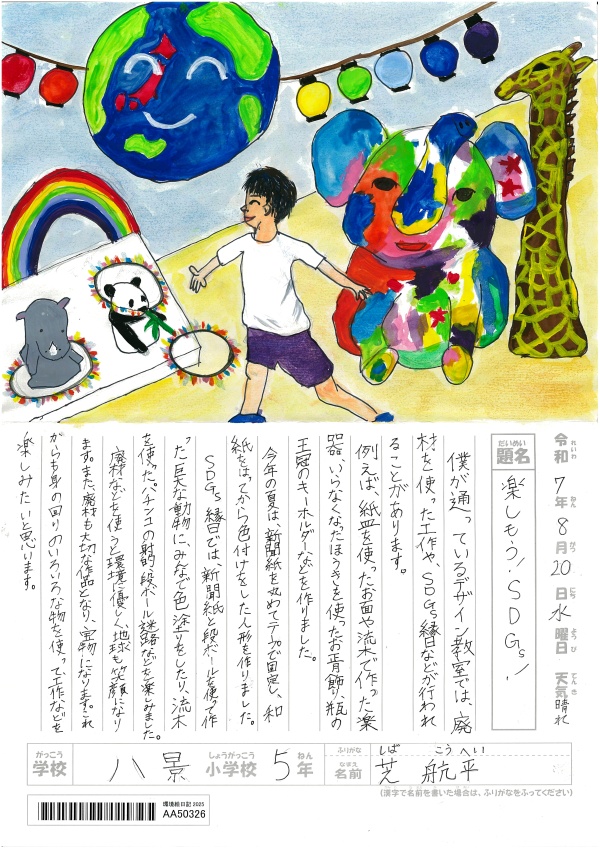 令和7年8月20日水曜日 天気晴れ
れいわ ねん がつ にち ようび てんき
だいめい
題名 楽しもう!SDGs!
僕が通っているデザイン教室では、廃
材を使った工作や、SDGs縁日などが行われ
ることがあります。
例えば、紙皿を使ったお面や流木で作った楽
器、いらなくなったほうきを使ったお正月飾り、瓶の
王冠のキーホルダーなどを作りました。
今年の夏は、新聞紙を丸めてテープで固定し、和
紙をはってから色付けをした人形を作りました。
SDGs縁日では、新聞紙と段ボールを使って作
った巨大な動物に、みなで色塗りをしたり、流木
を使ったパチンコの射的、段ボール迷路などを楽しみました。
廃材などを使うと環境に優しく、地球も笑顔になり
ます。また、廃材も大切な作品となり、宝物になります。これ
からも身の回りのいろいろな物を使って、工作などを
楽しみたいと思います。
がっこう しょうがっこう ねん ふりがな しば こうへい
学校 八景 小学校 5年 なまえ 名前 芝 航平
(漢字で名前を書いた場合は、ふりがなをふってください)
環境絵日記2025
AA50326